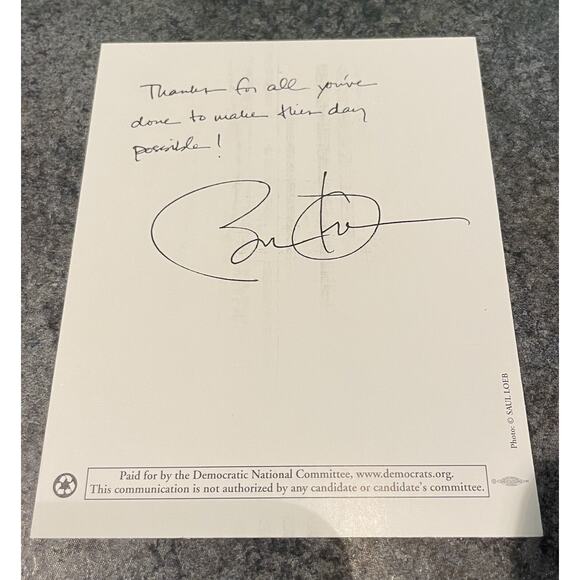 Thanks for all you've
done to make this day
possible!
Photo: © SAUL LOEB
Paid for by the Democratic National Committee, www.democrats.org.
This communication is not authorized by any candidate or candidate's committee.